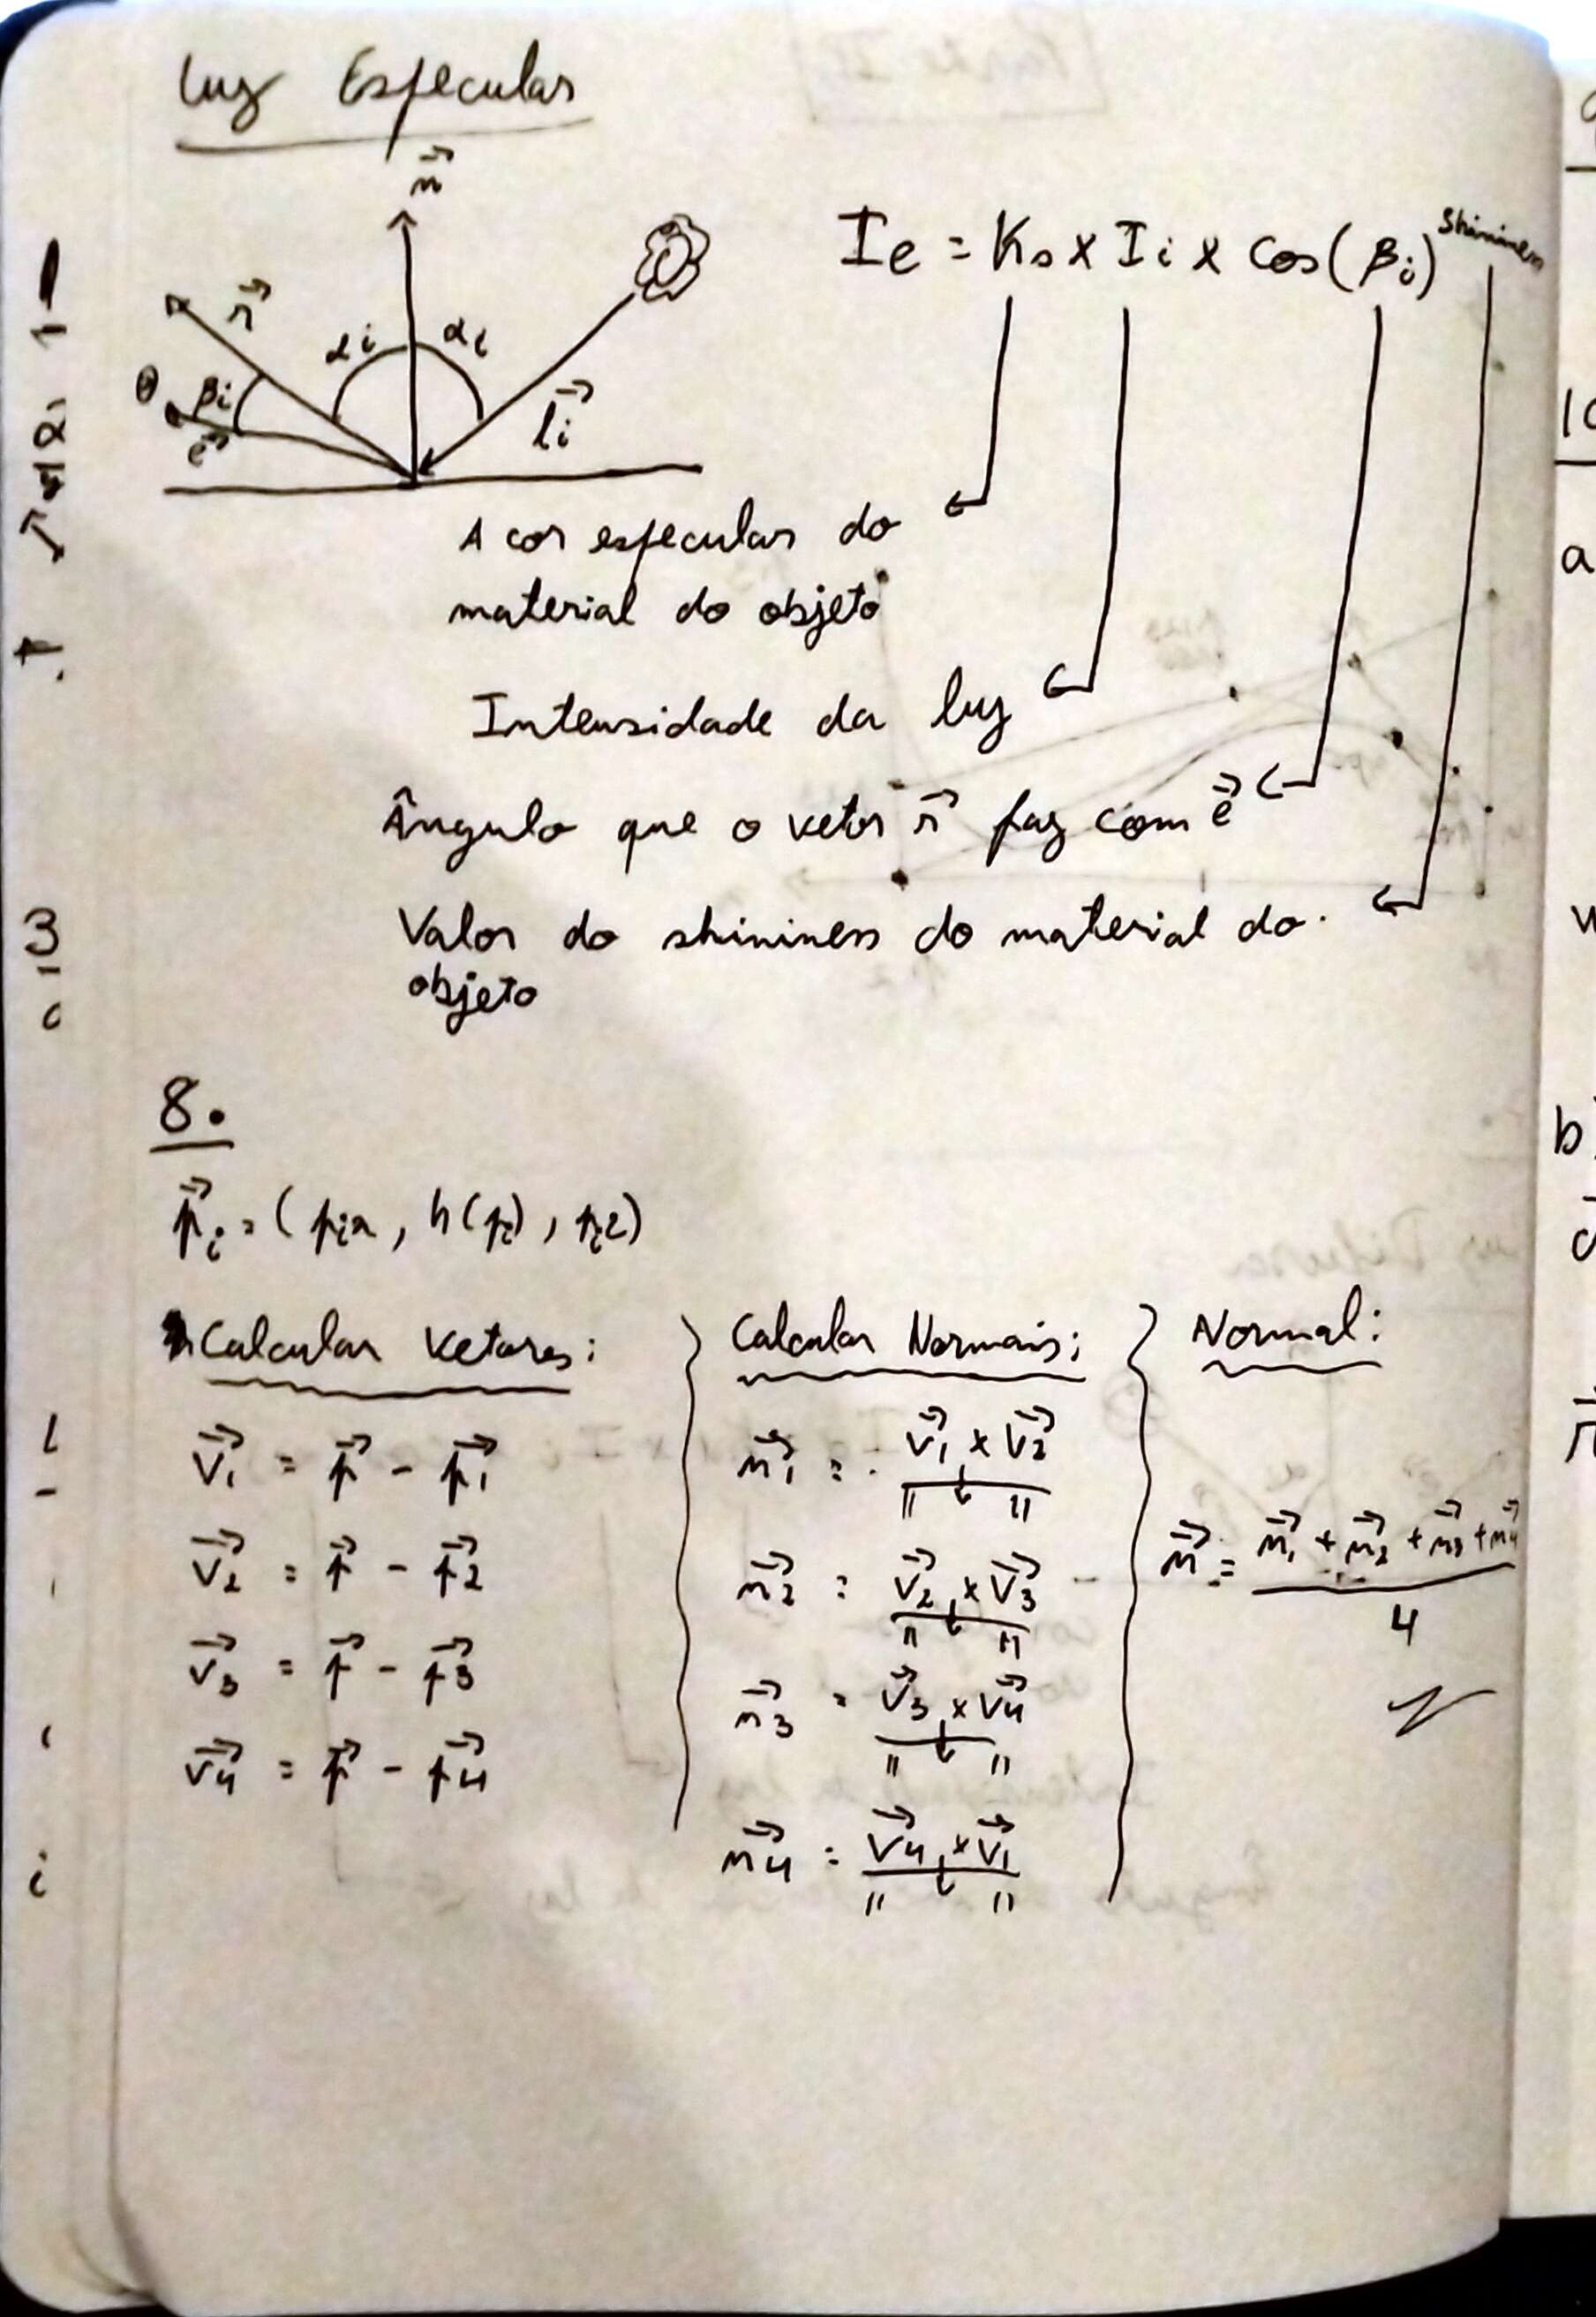 Luz Especular
n⃗
r⃗
αi αi
βi
e⃗
l⃗i
Ie = Ks x Ii x cos(βi)^shininess
A cor especular do
material do objeto
Intensidade da luz
Ângulo que o vetor r⃗ faz com e⃗
Valor do shininess do material do
objeto
8.
p⃗i = (pix, h(pi), piz)
Calcular Vetores:
v⃗1 = p⃗ - p⃗1
v⃗2 = p⃗ - p⃗2
v⃗3 = p⃗ - p⃗3
v⃗4 = p⃗ - p⃗4
Calcular Normais:
n⃗1 = v⃗1 x v⃗2
" ↓ "
n⃗2 = v⃗2 x v⃗3
" ↓ "
n⃗3 = v⃗3 x v⃗4
" ↓ "
n⃗4 = v⃗4 x v⃗1
" ↓ "
Normal:
n⃗ = n⃗1 + n⃗2 + n⃗3 + n⃗4
4